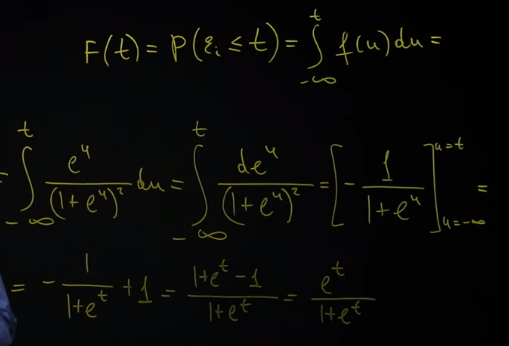 F(t) = P(ε_i ≤ t) = ∫_{-∞}^{t} f(u) du =
= ∫_{-∞}^{t} e^u / (1+e^u)^2 du = ∫_{-∞}^{t} de^u / (1+e^u)^2 = [ - 1 / (1+e^u) ]_{u=-∞}^{u=t} =
= - 1 / (1+e^t) + 1 = (1+e^t - 1) / (1+e^t) = e^t / (1+e^t)